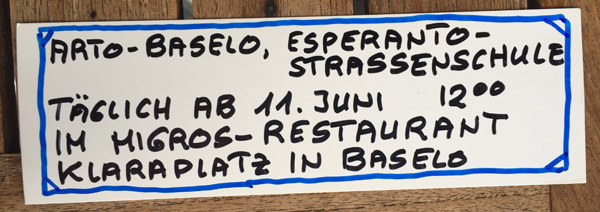 ARTO-BASELO, ESPERANTO-
STRASSENSCHULE
TÄGLICH AB 11. JUNI 12⁰⁰
IM MIGROS-RESTAURANT
KLARAPLATZ IN BASELO